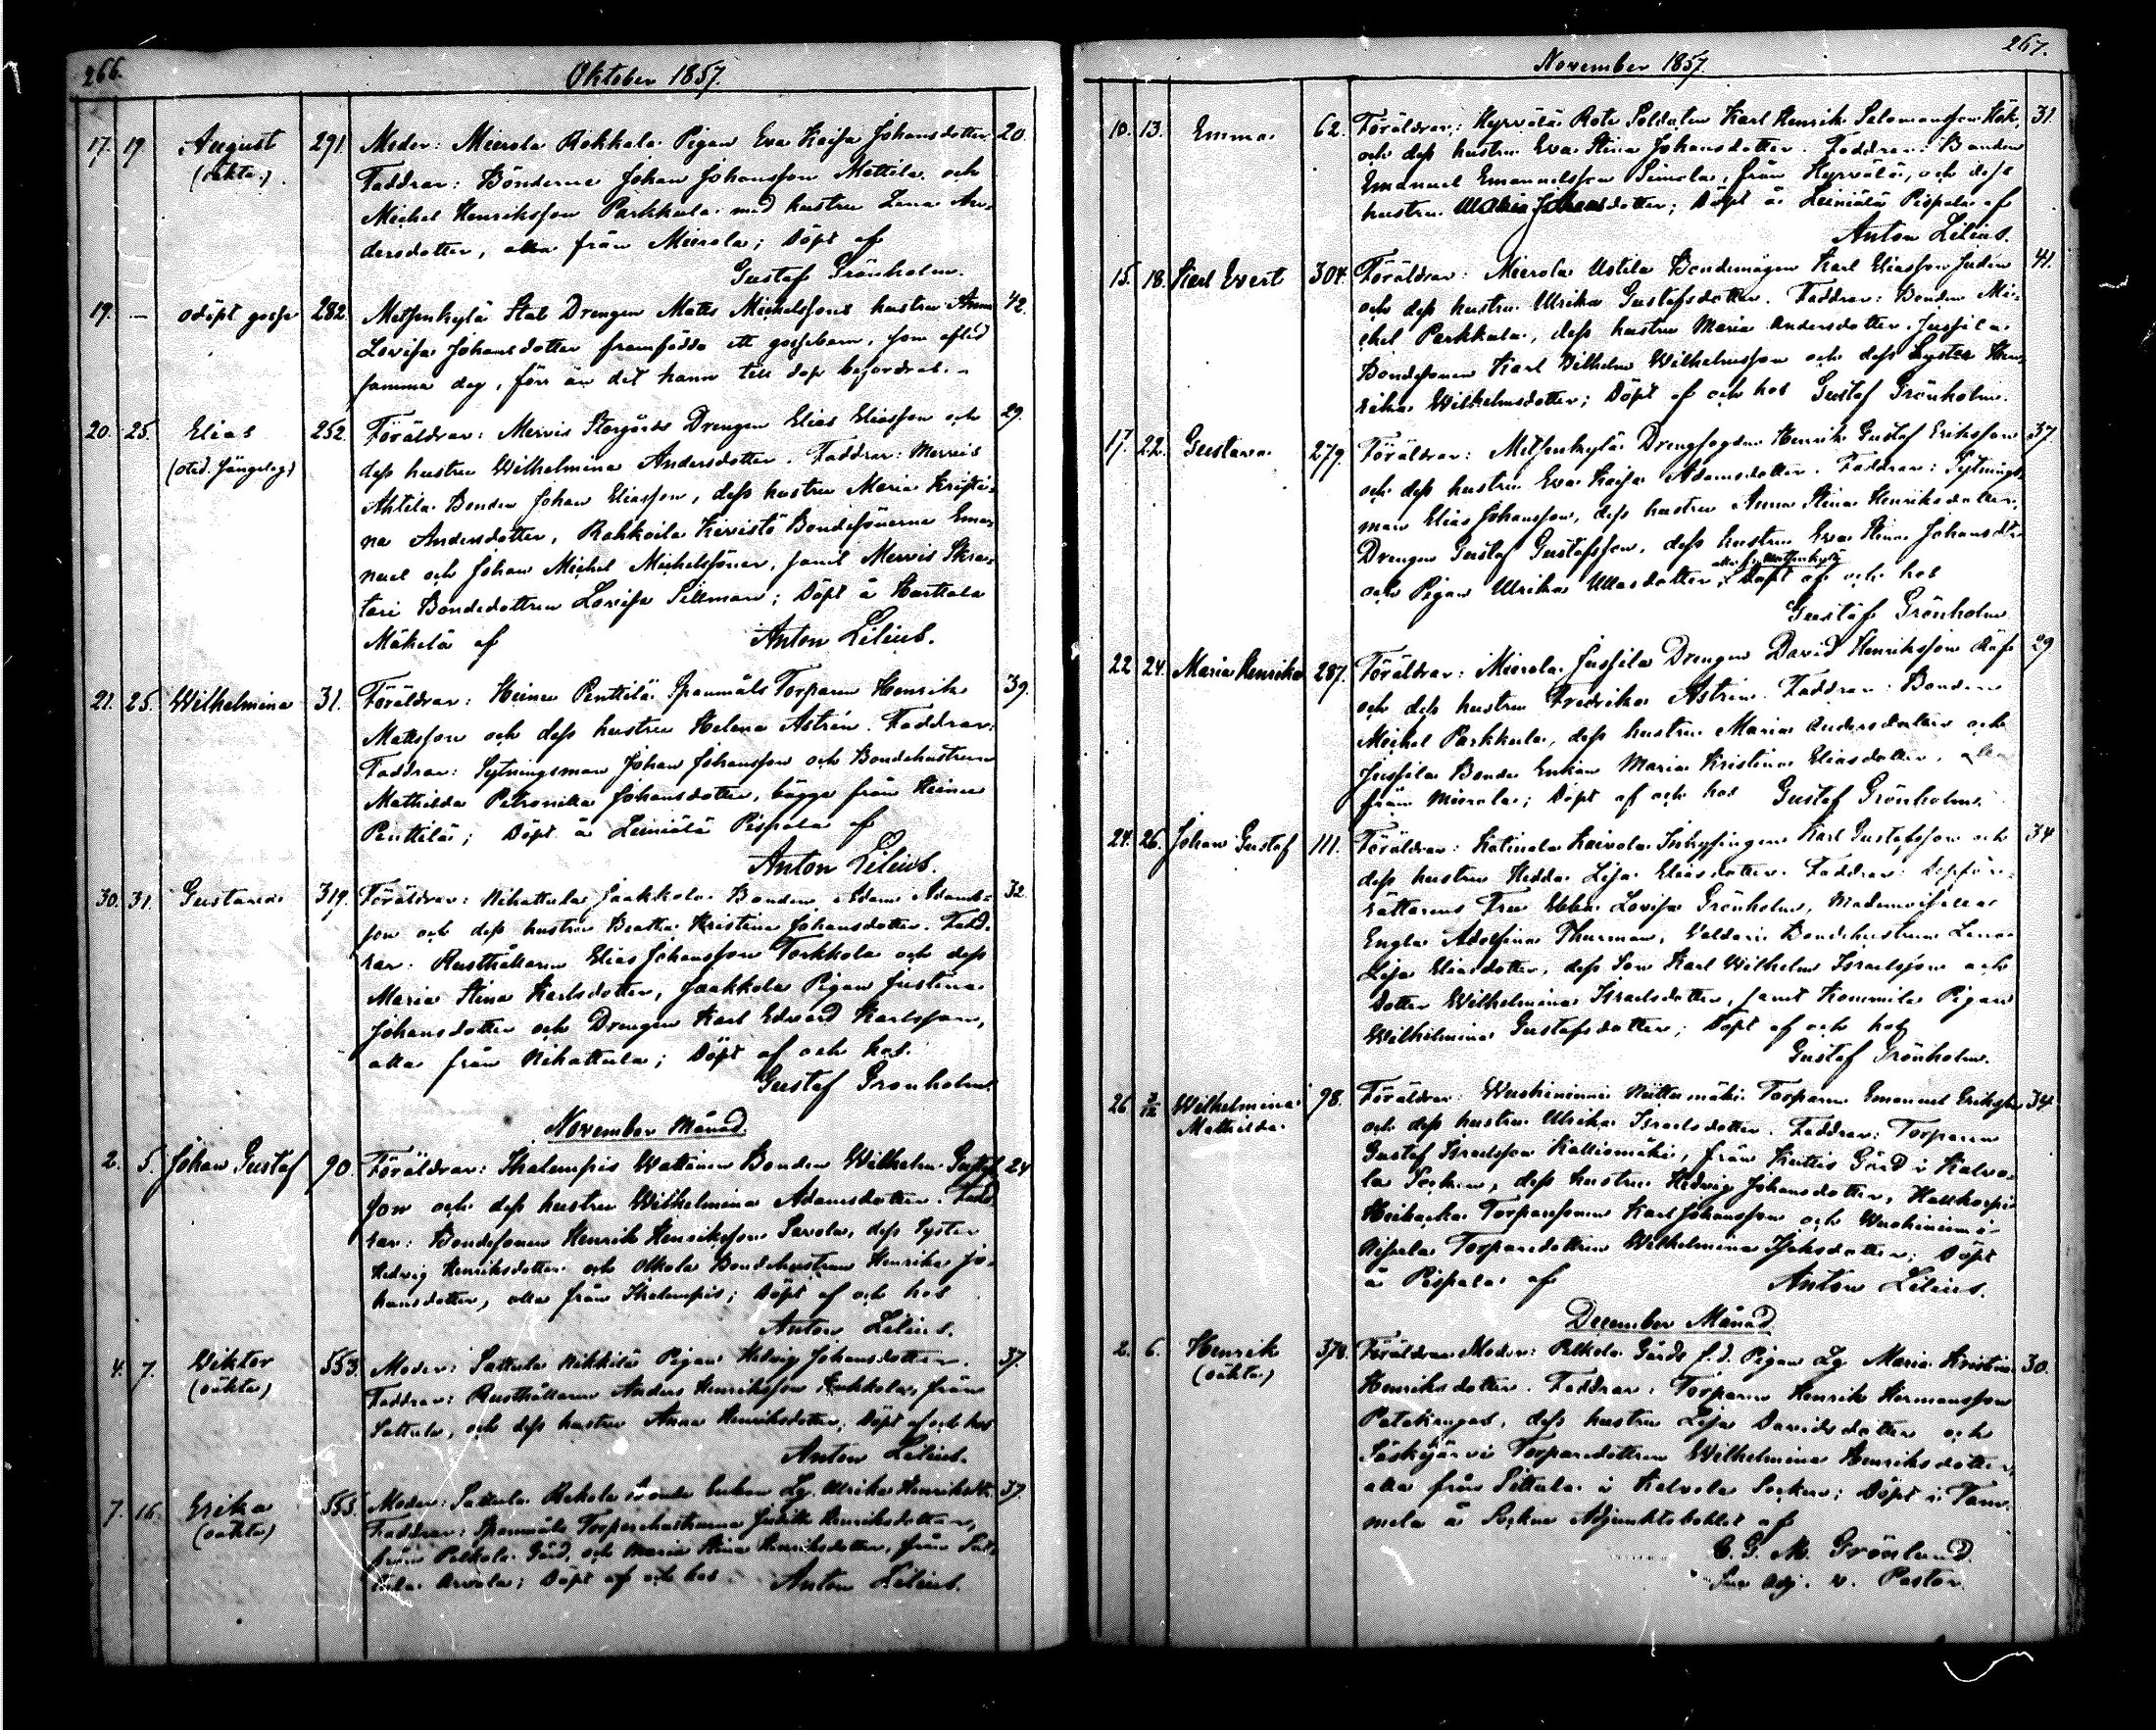 266.
Oktober 1857.
17. 19. August 291. Moder: Mierola Rokkala Pigan Eva Kaisa Johansdotter. 20.
(oäkta.) Faddrar: Bönderne Johan Johansson Mattila och
Michel Henriksson Parkkula med hustru Lena An-
dersdotter, alla från Mierola; Döpt af
Gustaf Grönholm.
19. — odöpt gosse 282. Metsenkylä Stat Drengen Matts Michelssons hustru Anna 42.
Lovisa Johansdotter framfödde ett gossebarn, som afled
samma dag, förr än det hann till dop befordras. –
20. 25. Elias 252. Föräldrar: Mervis Storgårds Drengen Elias Eliasson och 29.
dess hustru Wilhelmina Andersdotter. Faddrar: Mervis
Ahtila Bonden Johan Eliasson, dess hustru Maria Kristi-
na Andersdotter, Rahkoila Kivistö Bondesönerne Ema-
nuel och Johan Michel Michelssöner, samt Mervis Skra-
tari Bondedottren Lovisa Sillman; Döpt å Hurttala
Mäkelä af Anton Lilius.
21. 25. Wilhelmina 31. Föräldrar: Heinu Penttilä Spanmåls Torparen Henrik 39.
Mattsson och dess hustru Helena Astrén. Faddrar:
Faddrar: Sytningsman Johan Johansson och Bondehustrun
Mathilda Petronella Johansdotter, bägge från Heinu
Penttilä; Döpt å Leiniälä Pispala af
Anton Lilius.
30. 31. Gustava 319. Föräldrar: Nihattula Jaakkola Bonden Adam Adams- 32.
son och dess hustru Beatha Kristina Johansdotter. Fad-
rar: Rusthållaren Elias Johansson Torkkola och dess
Maria Stina Karlsdotter, Jaakkola Pigan Justina
Johansdotter och Drengen Karl Edvard Karlsson,
alla från Nihattula; Döpt af och hos.
Gustaf Grönholm.
November Månad.
2. 5. Johan Gustaf 90. Föräldrar: Ihalempis Wattinen Bonden Wilhelm Gustaf- 24
son och dess hustru Wilhelmina Adamsdotter. Fadd
rar: Bondesonen Henrik Henriksson Savola, dess Syster
Hedvig Henriksdotter och Olkola Bondehustrun Henrika Jo-
hansdotter, alla från Ihalempis; Döpt af och hos
Anton Lilius.
4. 7. Wiktor 553. Moder: Sattula Nikkilä Pigan Hedvig Johansdotter. 37.
(oäkta) Faddrar: Rusthållaren Anders Henriksson Kukkola, från
Sattula, och dess hustru Anna Henriksdotter; Döpt af och hos
Anton Lilius.
7. 16. Erika 555. Moder: Sattula Rekola Lg. Ulrika Henriksdr. 37.
(oäkta) Faddrar: Spanmåls Torparehustrurna Henriksdotter,
från Pelkola Gård, och Maria Stina Henriksdotter, från Sat-
tula Arvola; Döpt af och hos Anton Lilius.
267.
November 1857.
10. 13. Emma 62. Föräldrar: Hyrvälä Rote Soldaten Karl Henrik Salomonsson Hök, 31.
och dess hustru Eva Stina Johansdotter. Faddrar: Bonden
Emanuel Emanuelsson Simola, från Hyrvälä, och dess
hustru Maria Johansdotter; Döpt å Leiniälä Pispala af
Anton Lilius.
15. 18. Karl Evert 304. Föräldrar: Mierola Ustela Bondemågen Karl Eliasson Judin 41.
och dess hustru Ulrika Gustafsdotter. Faddrar: Bonden Mi-
chel Parkkula, dess hustru Maria Andersdotter, Jussila
Bondesonen Karl Wilhelm Wilhelmsson och dess Syster Hen-
rika Wilhelmsdotter; Döpt af och hos Gustaf Grönholm.
17. 22. Gustava 279. Föräldrar: Metsenkylä Drengfogden Henrik Gustaf Eriksson 37
och dess hustru Eva Kaisa Adamsdotter. Faddrar: Sytnings-
man Elias Johansson, dess hustru Anna Stina Henriksdotter,
Drengen Gustaf Gustafsson, dess hustru Eva Stina Johansdtr
och Pigan Ulrika Ullasdotter, alla fr. Mettsenkylä; Döpt af och hos
Gustaf Grönholm
22 24. Maria Henrika 287. Föräldrar: Mierola Jussila Drengen David Henriksson 29
och dess hustru Fredrika Astrin. Faddrar: Bonden
Michel Parkkula, dess hustru Maria Andersdotter och
Jussila Bonde Enkan Maria Kristina Eliasdotter, alla
från Mierola; Döpt af och hos Gustaf Grönholm.
24. 26. Johan Gustaf 111. Föräldrar: Katinala Kaivola Inhysingen Karl Gustafsson och 34
dess hustru Hedda Lisa Eliasdotter. Faddrar:
rättarens Fru Ebba Lovisa Grönholm, Mademoisellen
Engla Adolfina Thurman, Bondehustrun Lena
Lisa Eliasdotter, dess Son Karl Wilhelm Israelsson och
dotter Wilhelmina Israelsdotter, samt Kommila Pigan
Wilhelmina Gustafsdotter; Döpt af och hos
Gustaf Grönholm.
26 2/12 Wilhelmina 98. Föräldrar: Wuohiniemi Torparen Emanuel Eriksson 34.
Mathilda. och dess hustru Ulrika Israelsdotter. Faddrar: Torparen
Gustaf Israelsson Kalliomäki, från Kuttis Gård i Kalvo-
la Socken, dess hustru Hedvig Johansdotter,
Torparesonen Karl Johansson och Wuohiniemi
Torparedottren Wilhelmina dotter; Döpt
å Pispala af Anton Lilius.
December Månad
2. 6. Henrik 378. Föräldrar Moder: Pelkola Gårds f. d. Pigan Lg. Maria Kristina 30.
(oäkta) Henriksdotter. Faddrar: Torparen Henrik Hermansson
Patakangas, dess hustru Lisa Davidsdotter och
Sääskjärvi Torparedottren Wilhelmina Henriksdotter,
alla från Sittala i Kalvola Socken; Döpt i Tam-
mela å Socken Adjunktsbohlet af
C. G. M. Grönlund.
Soc Adj. v. Pastor.